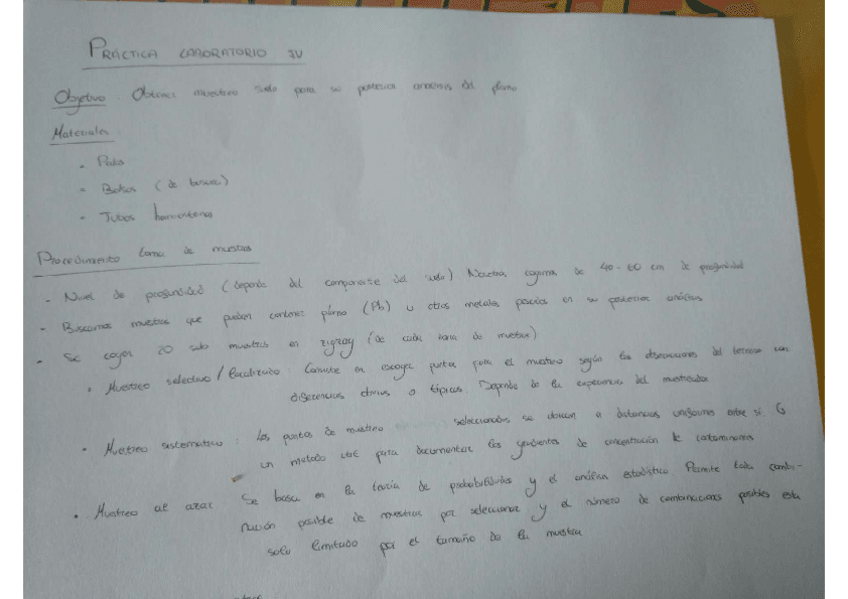 PRÁCTICA LABORATORIO IV
Objetivo: Obtener muestreo suelo para su posterior análisis del plomo
Materiales
- Pala
- Bolsas (de basura)
- Tubos
Procedimiento toma de muestras
- Nivel de profundidad (depende del componente del suelo) Nosotros cogemos de 40-60 cm de profundidad
- Buscamos muestras que puedan contener plomo (Pb) u otros metales pesados en su posterior análisis
- Se cogen 20 sub muestras en zigzag (de cada toma de muestra)
• Muestreo selectivo / localizado: Consiste en escoger puntos para el muestreo según las observaciones del terreno con
diferencias obvias o típicas. Depende de la experiencia del muestreador
- Muestreo sistemático: los puntos de muestreo seleccionados se ubican a distancias uniformes entre sí. Es
un método útil para documentar los gradientes de concentración de contaminantes
• Muestreo al azar Se basa en la teoría de probabilidades y el análisis estadístico. Permite toda combi-
nación posible de muestras por seleccionar y el número de combinaciones posibles esta
solo limitado por el tamaño de la muestra